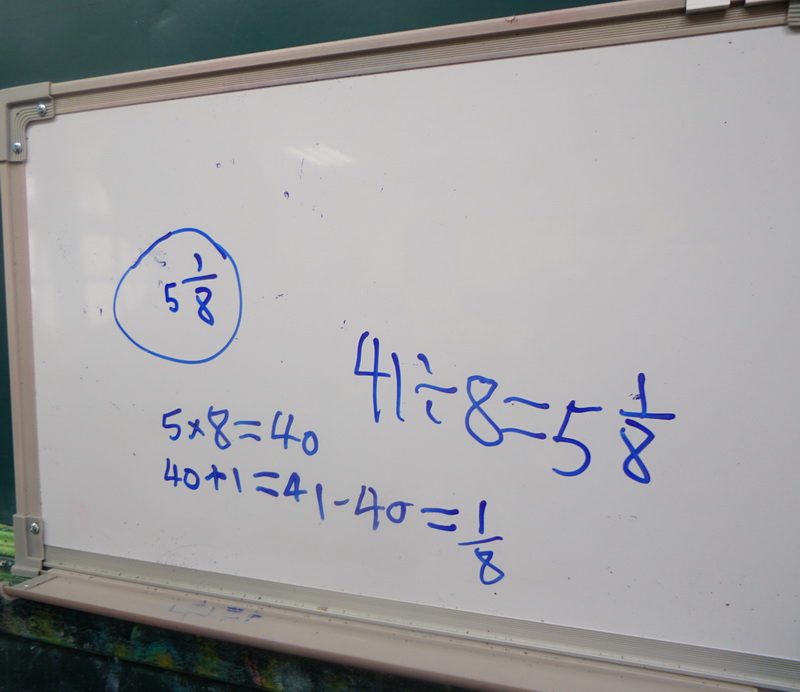 5 1/8
41÷8=5 1/8
5×8=40
40+1=41-40=1/8